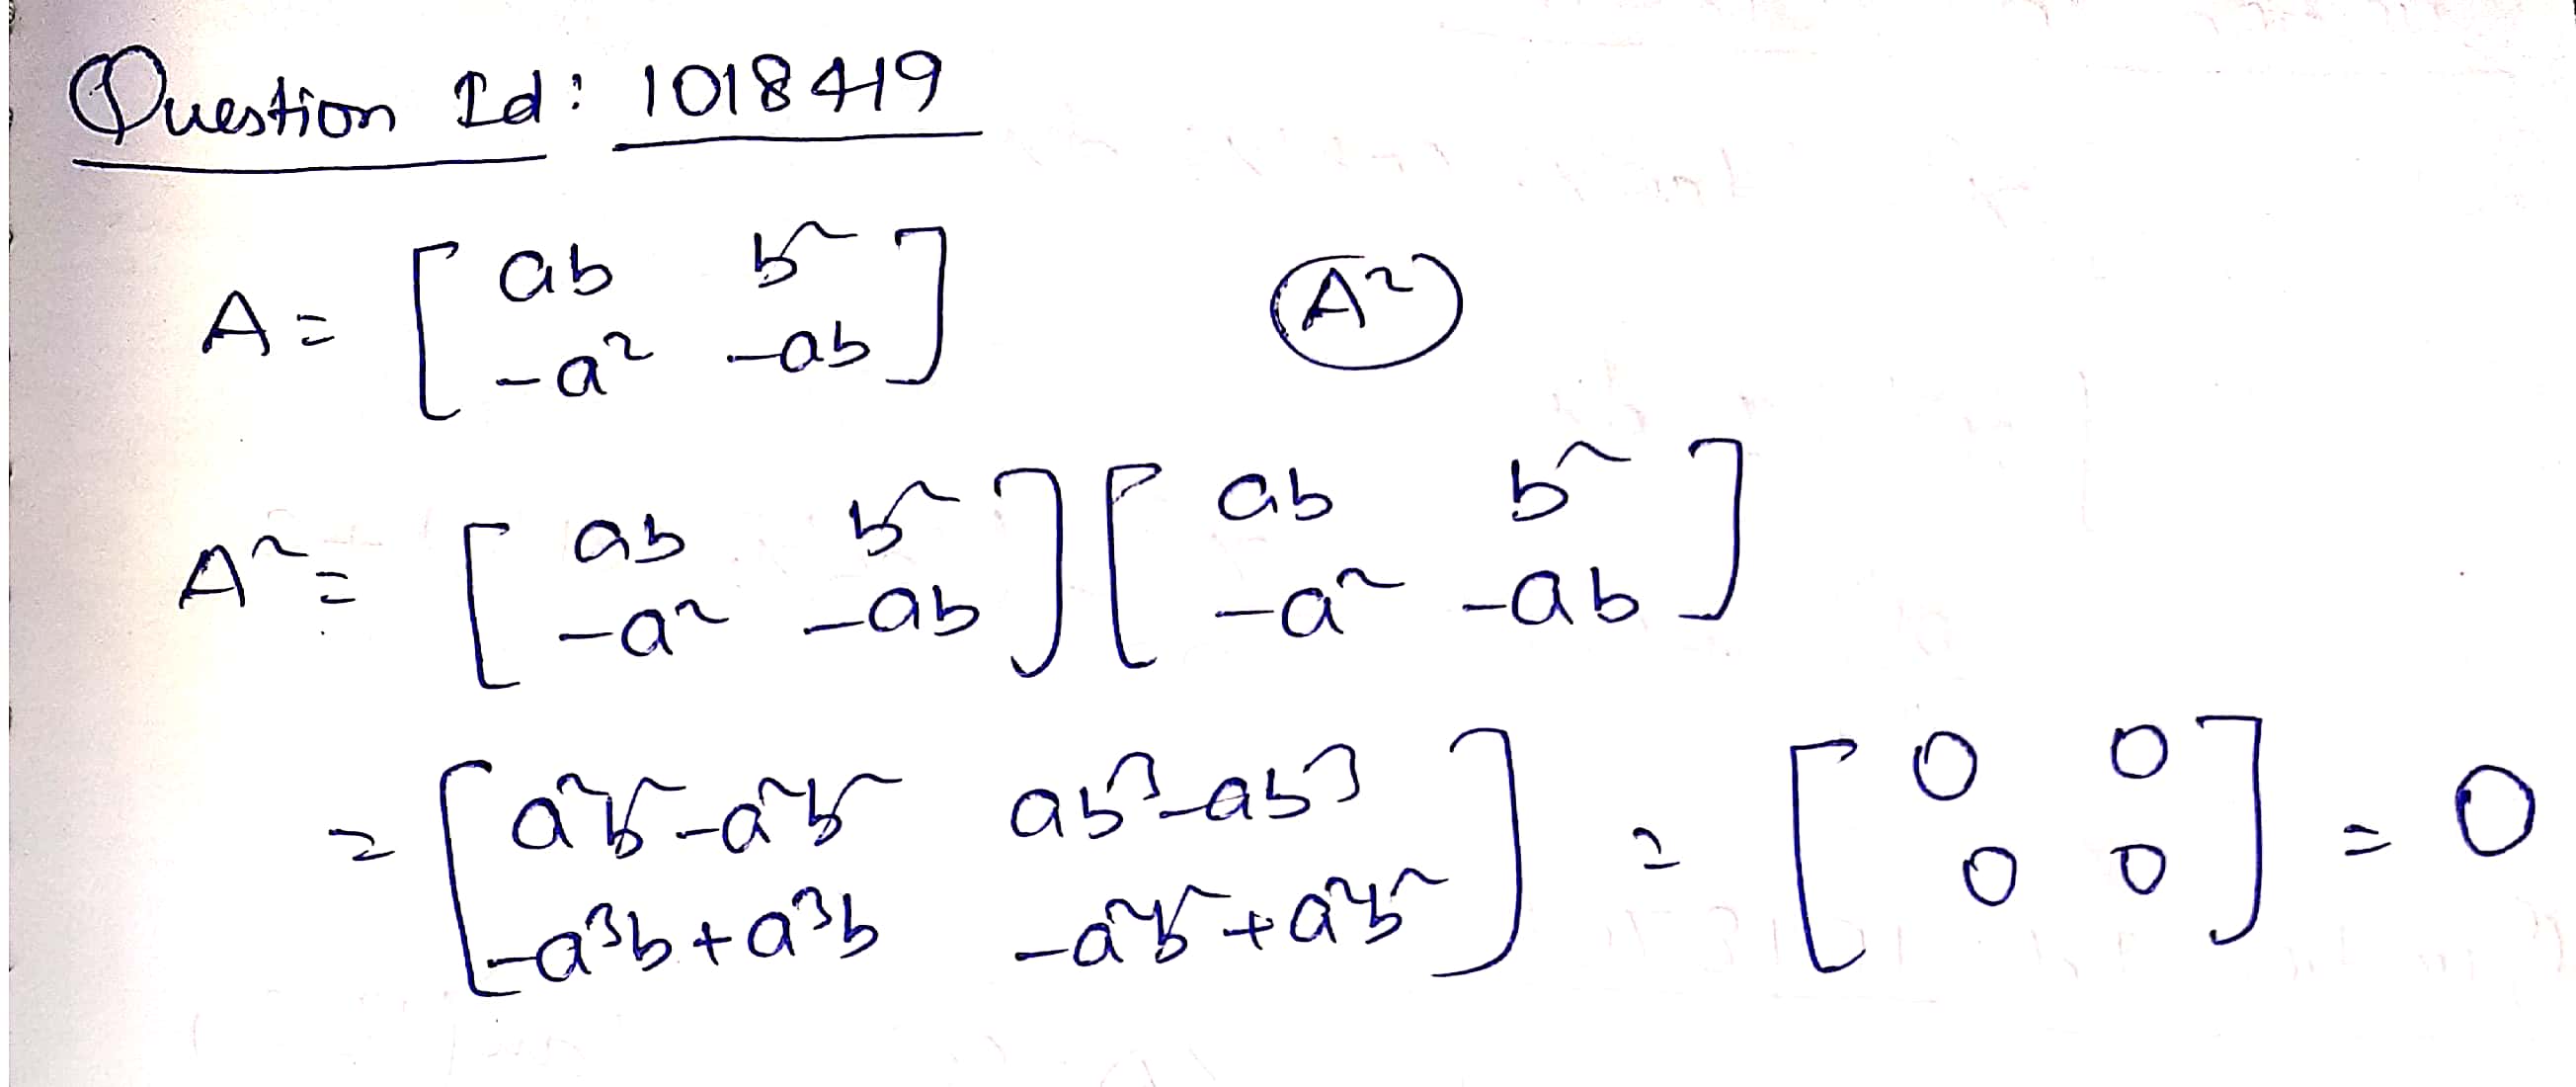 Question Id: 1018419
A = [ ab b² ; -a² -ab ] (A²)
A² = [ ab b² ; -a² -ab ] [ ab b² ; -a² -ab ]
= [ a²b²-a²b² ab³-ab³ ; -a³b+a³b -a²b²+a²b² ] = [ 0 0 ; 0 0 ] = 0